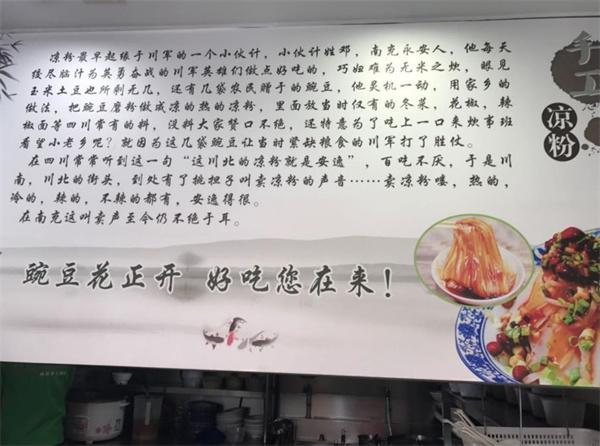 凉粉最早起缘于川军的一个小伙计，小伙计姓邓，南充永安人，他每天
绞尽脑汁为英勇奋战的川军英雄们做点好吃的，巧妇难为无米之炊，眼见
玉米土豆也所剩无几，还有几袋农民赠于的豌豆，他灵机一动，用家乡的
做法，把豌豆磨粉做成凉的热的凉粉，里面放当时仅有的冬菜，花椒，辣
椒面等四川常有的料，没料大家赞口不绝，还特意为了吃上一口来炊事班
看望小老乡呢？就因为这几袋豌豆让当时紧缺粮食的川军打了胜仗。
在四川常常听到这一句“这川北的凉粉就是安逸”，百吃不厌，于是川
南，川北的街头，到处有了挑担子叫卖凉粉的声音……卖凉粉喽，热的，
冷的，辣的，不辣的都有，安逸得很。
在南充这叫卖声至今仍不绝于耳。
豌豆花正开 好吃您在来！
手工
凉粉